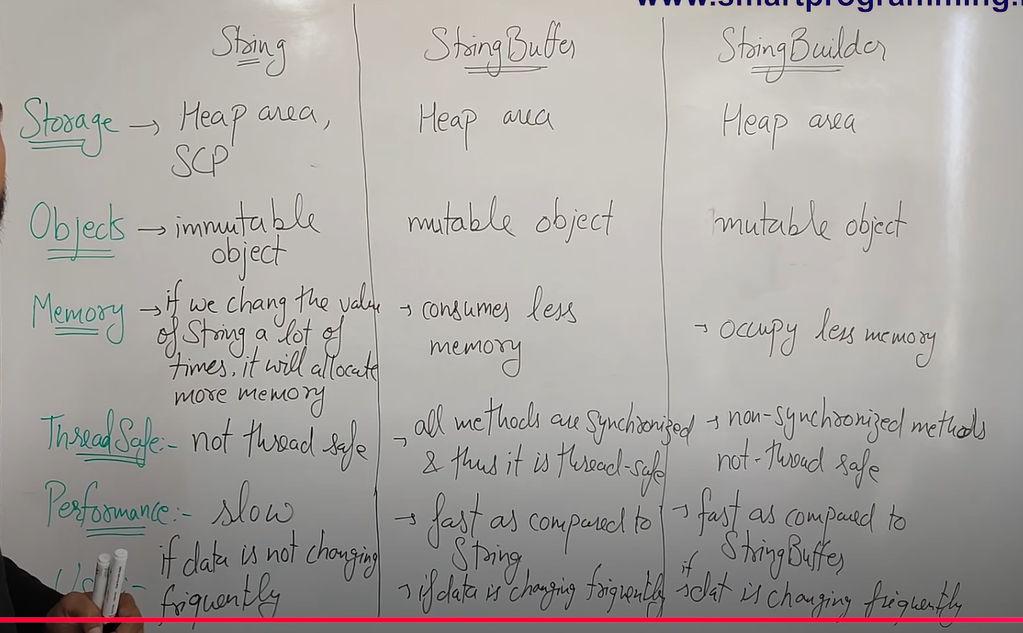 www.smartprogramming.
String StringBuffer StringBuilder
Storage → Heap area,
SCP
Heap area
Heap area
Objects → immutable
object
mutable object
mutable object
Memory → if we chang the value
of String a lot of
times, it will allocate
more memory
→ consumes less
memory
→ occupy less memory
ThreadSafe:- not thread safe
→ all methods are synchronized
& thus it is thread-safe
→ non-synchronized methods
not-thread safe
Performance:- slow
→ fast as compared to
String
→ fast as compared to
StringBuffer
if data is not changing
friquently
→ if data is changing friquently
→ if dat is changing friquently